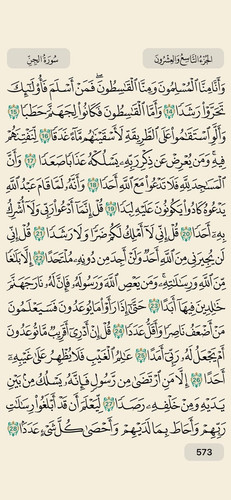 سُورَةُ الجِنِّ الجُزْءُ التَّاسِعُ وَالعِشْرُونَ
وَأَنَّا مِنَّا ٱلْمُسْلِمُونَ وَمِنَّا ٱلْقَٰسِطُونَۖ فَمَنْ أَسْلَمَ فَأُو۟لَٰٓئِكَ
تَحَرَّوْا۟ رَشَدًا 14 وَأَمَّا ٱلْقَٰسِطُونَ فَكَانُوا۟ لِجَهَنَّمَ حَطَبًا 15
وَأَلَّوِ ٱسْتَقَٰمُوا۟ عَلَى ٱلطَّرِيقَةِ لَأَسْقَيْنَٰهُم مَّآءً غَدَقًا 16 لِّنَفْتِنَهُمْ
فِيهِۚ وَمَن يُعْرِضْ عَن ذِكْرِ رَبِّهِۦ يَسْلُكْهُ عَذَابًا صَعَدًا 17 وَأَنَّ
ٱلْمَسَٰجِدَ لِلَّهِ فَلَا تَدْعُوا۟ مَعَ ٱللَّهِ أَحَدًا 18 وَأَنَّهُۥ لَمَّا قَامَ عَبْدُ ٱللَّهِ
يَدْعُوهُ كَادُوا۟ يَكُونُونَ عَلَيْهِ لِبَدًا 19 قُلْ إِنَّمَآ أَدْعُوا۟ رَبِّى وَلَآ أُشْرِكُ
بِهِۦٓ أَحَدًا 20 قُلْ إِنِّى لَآ أَمْلِكُ لَكُمْ ضَرًّا وَلَا رَشَدًا 21 قُلْ إِنِّى
لَن يُجِيرَنِى مِنَ ٱللَّهِ أَحَدٌ وَلَنْ أَجِدَ مِن دُونِهِۦ مُلْتَحَدًا 22 إِلَّا بَلَٰغًا
مِّنَ ٱللَّهِ وَرِسَٰلَٰتِهِۦۚ وَمَن يَعْصِ ٱللَّهَ وَرَسُولَهُۥ فَإِنَّ لَهُۥ نَارَ جَهَنَّمَ
خَٰلِدِينَ فِيهَآ أَبَدًا 23 حَتَّىٰٓ إِذَا رَأَوْا۟ مَا يُوعَدُونَ فَسَيَعْلَمُونَ
مَنْ أَضْعَفُ نَاصِرًا وَأَقَلُّ عَدَدًا 24 قُلْ إِنْ أَدْرِىٓ أَقَرِيبٌ مَّا تُوعَدُونَ
أَمْ يَجْعَلُ لَهُۥ رَبِّىٓ أَمَدًا 25 عَٰلِمُ ٱلْغَيْبِ فَلَا يُظْهِرُ عَلَىٰ غَيْبِهِۦٓ
أَحَدًا 26 إِلَّا مَنِ ٱرْتَضَىٰ مِن رَّسُولٍ فَإِنَّهُۥ يَسْلُكُ مِنۢ بَيْنِ
يَدَيْهِ وَمِنْ خَلْفِهِۦ رَصَدًا 27 لِّيَعْلَمَ أَن قَدْ أَبْلَغُوا۟ رِسَٰلَٰتِ
رَبِّهِمْ وَأَحَاطَ بِمَا لَدَيْهِمْ وَأَحْصَىٰ كُلَّ شَىْءٍ عَدَدًۢا 28
573